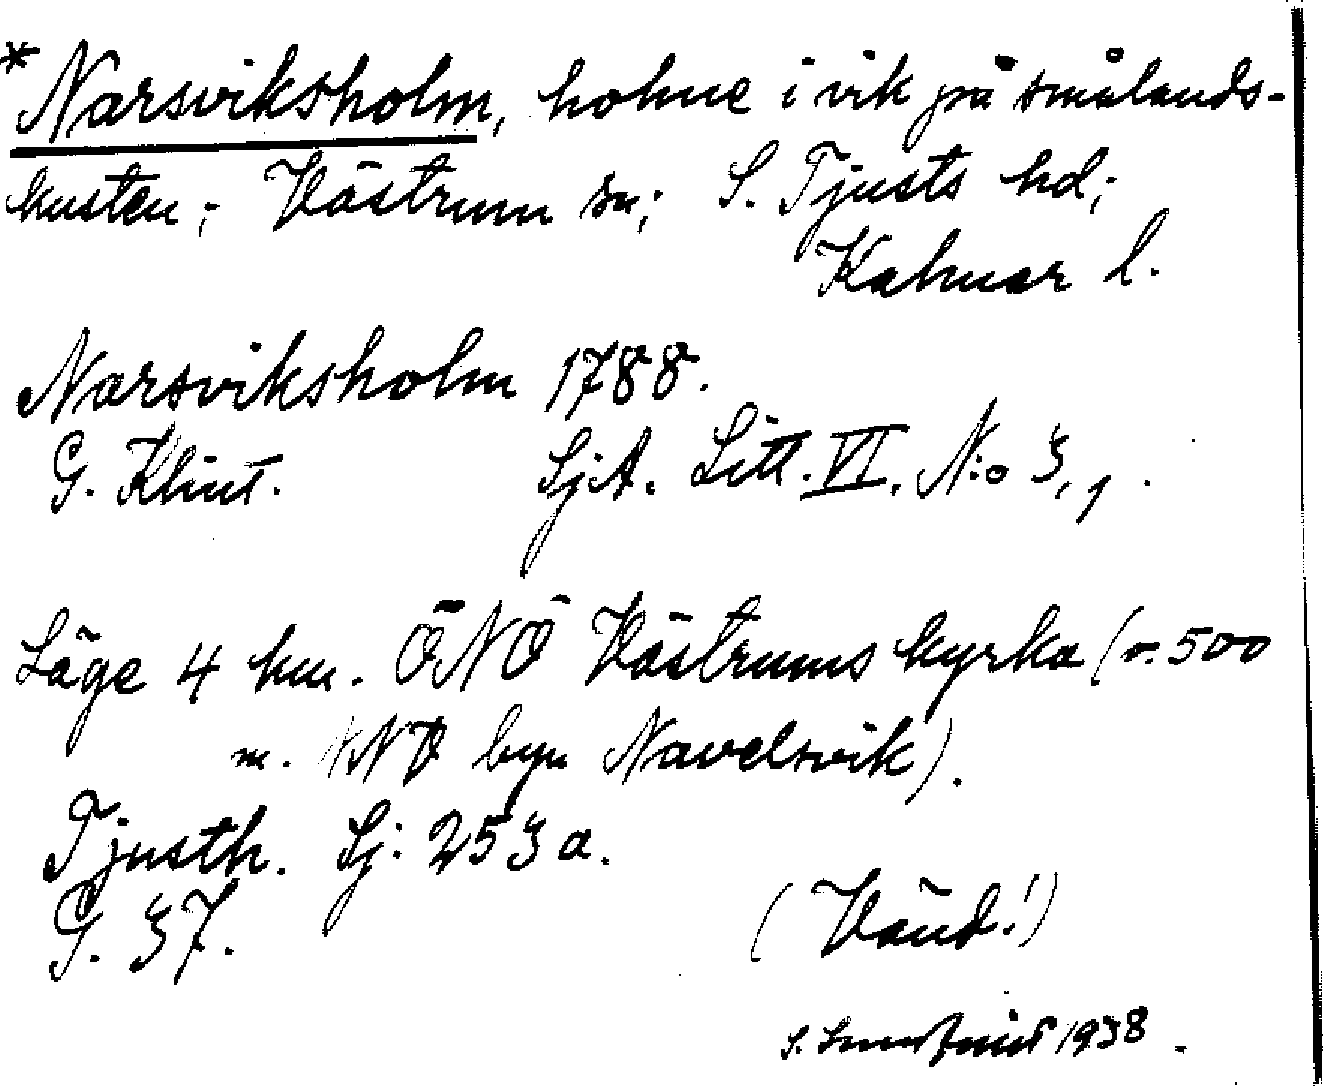 *Narsviksholm, holme i vik på smålands-
kusten; Västrum sn; S. Tjusts hd;
Kalmar l.
Narsviksholm 1788.
G. Klint. SjA. Litt. VI. N:o 3, 1.
Läge 4 km. ÖNÖ Västrums kyrka (c. 500
m. NO byn Navelsvik).
Tjusth. Sj: 253 a.
G. 37.
(Vänd!)
S. 1938.